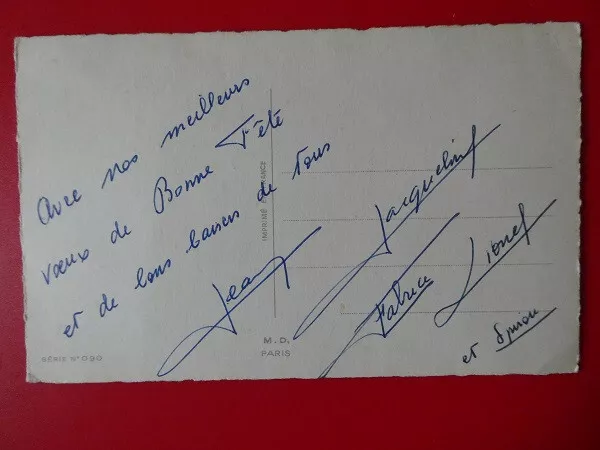 Avec nos meilleurs
vœux de Bonne Fête
et de bons baisers de tous
Jean
Jacqueline
Fabrice
Lionel
et Spirou
IMPRIMÉ FRANCE
M.D.
PARIS
SÉRIE N° 090